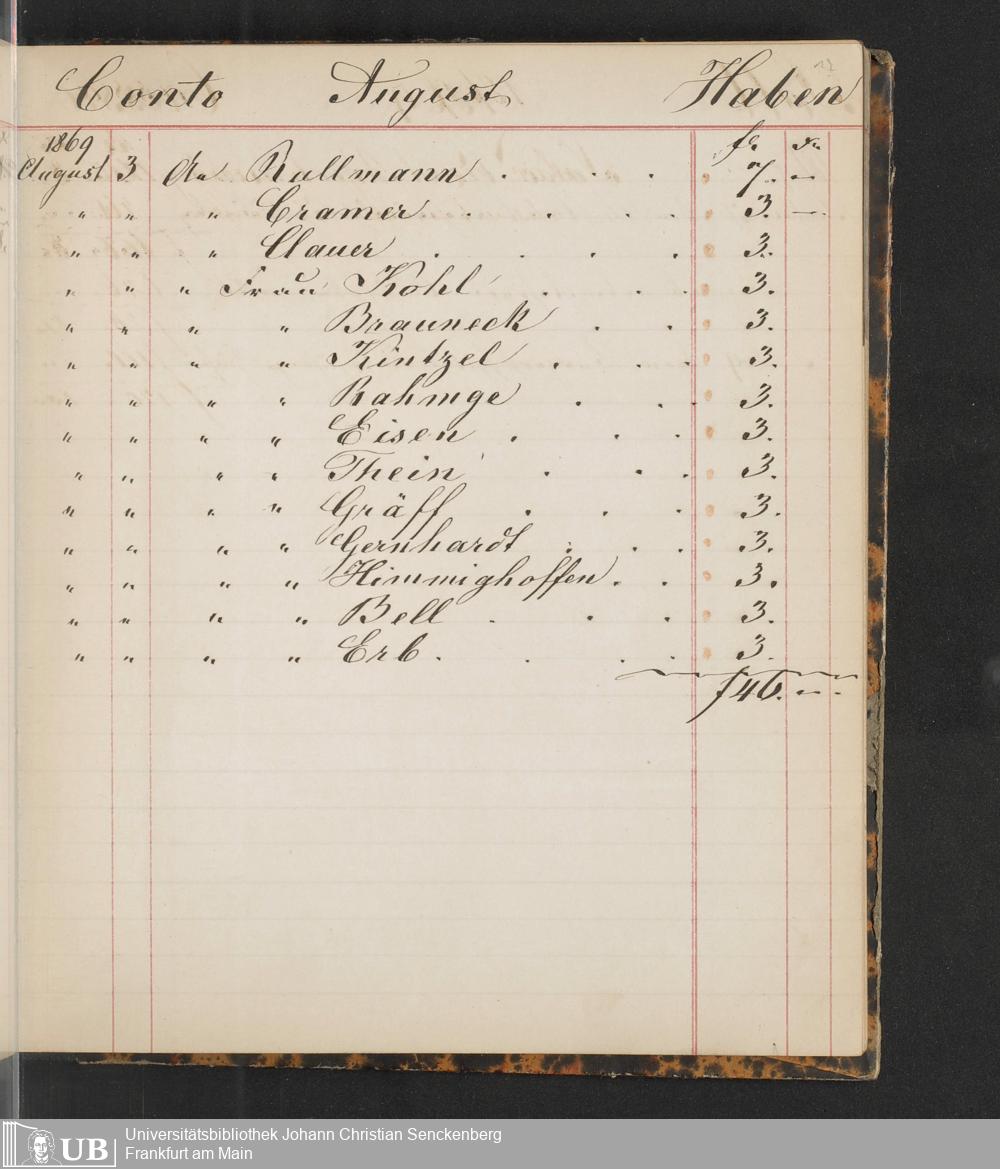 Conto August Haben
1869 f. x.
August 3 An Rullmann . . . 7. —
" " " Cramer . . . . 3. —
" " " Clauer . . . . 3.
" " " Frau Kohl . . . 3.
" " " " Brauneck . . 3.
" " " " Kintzel . . . 3.
" " " " Rahmge . . . 3.
" " " " Eisen . . . 3.
" " " " Thein . . . 3.
" " " " Gräff . . . 3.
" " " " Gernhardt . . . 3.
" " " " Himmighoffen . . 3.
" " " " Bell . . . 3.
" " " " Erb . . . . 3.
f 46. —
UB Universitätsbibliothek Johann Christian Senckenberg
Frankfurt am Main